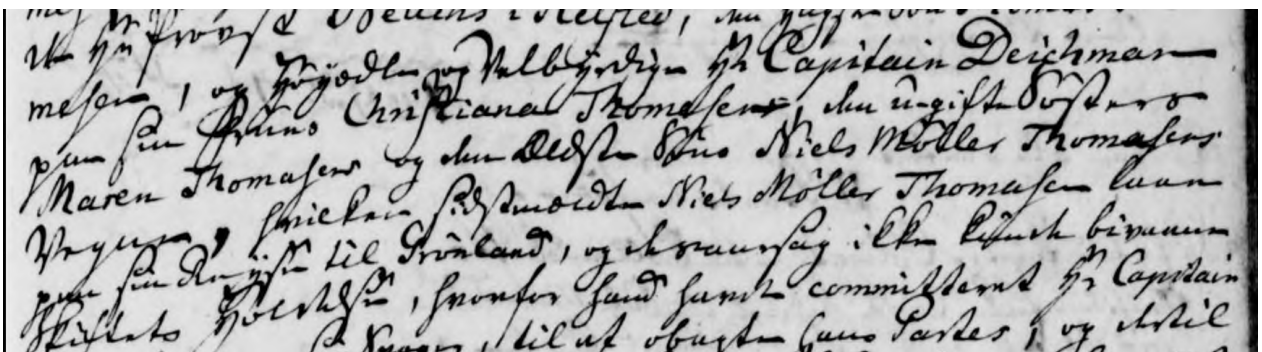 Hr Provst i Kelsted, den
mesen, og Høyædle og Velbyrdige Hr Capitain Deichman
paa sin Frues Christiana Thomasens, den ugifte Søsters
Maren Thomasens og den Ældste Søns Niels Möller Thomasens
Vegne, hvilken sidstmeldte Niels Möller Thomasen laae
paa sin Reyse til Grönland, og deraarsag ikke kunde bivaane
Skiftets Holdelse, hvorfor hand havde committeret Hr Capitain
til at obagte hans Partes, og dertil